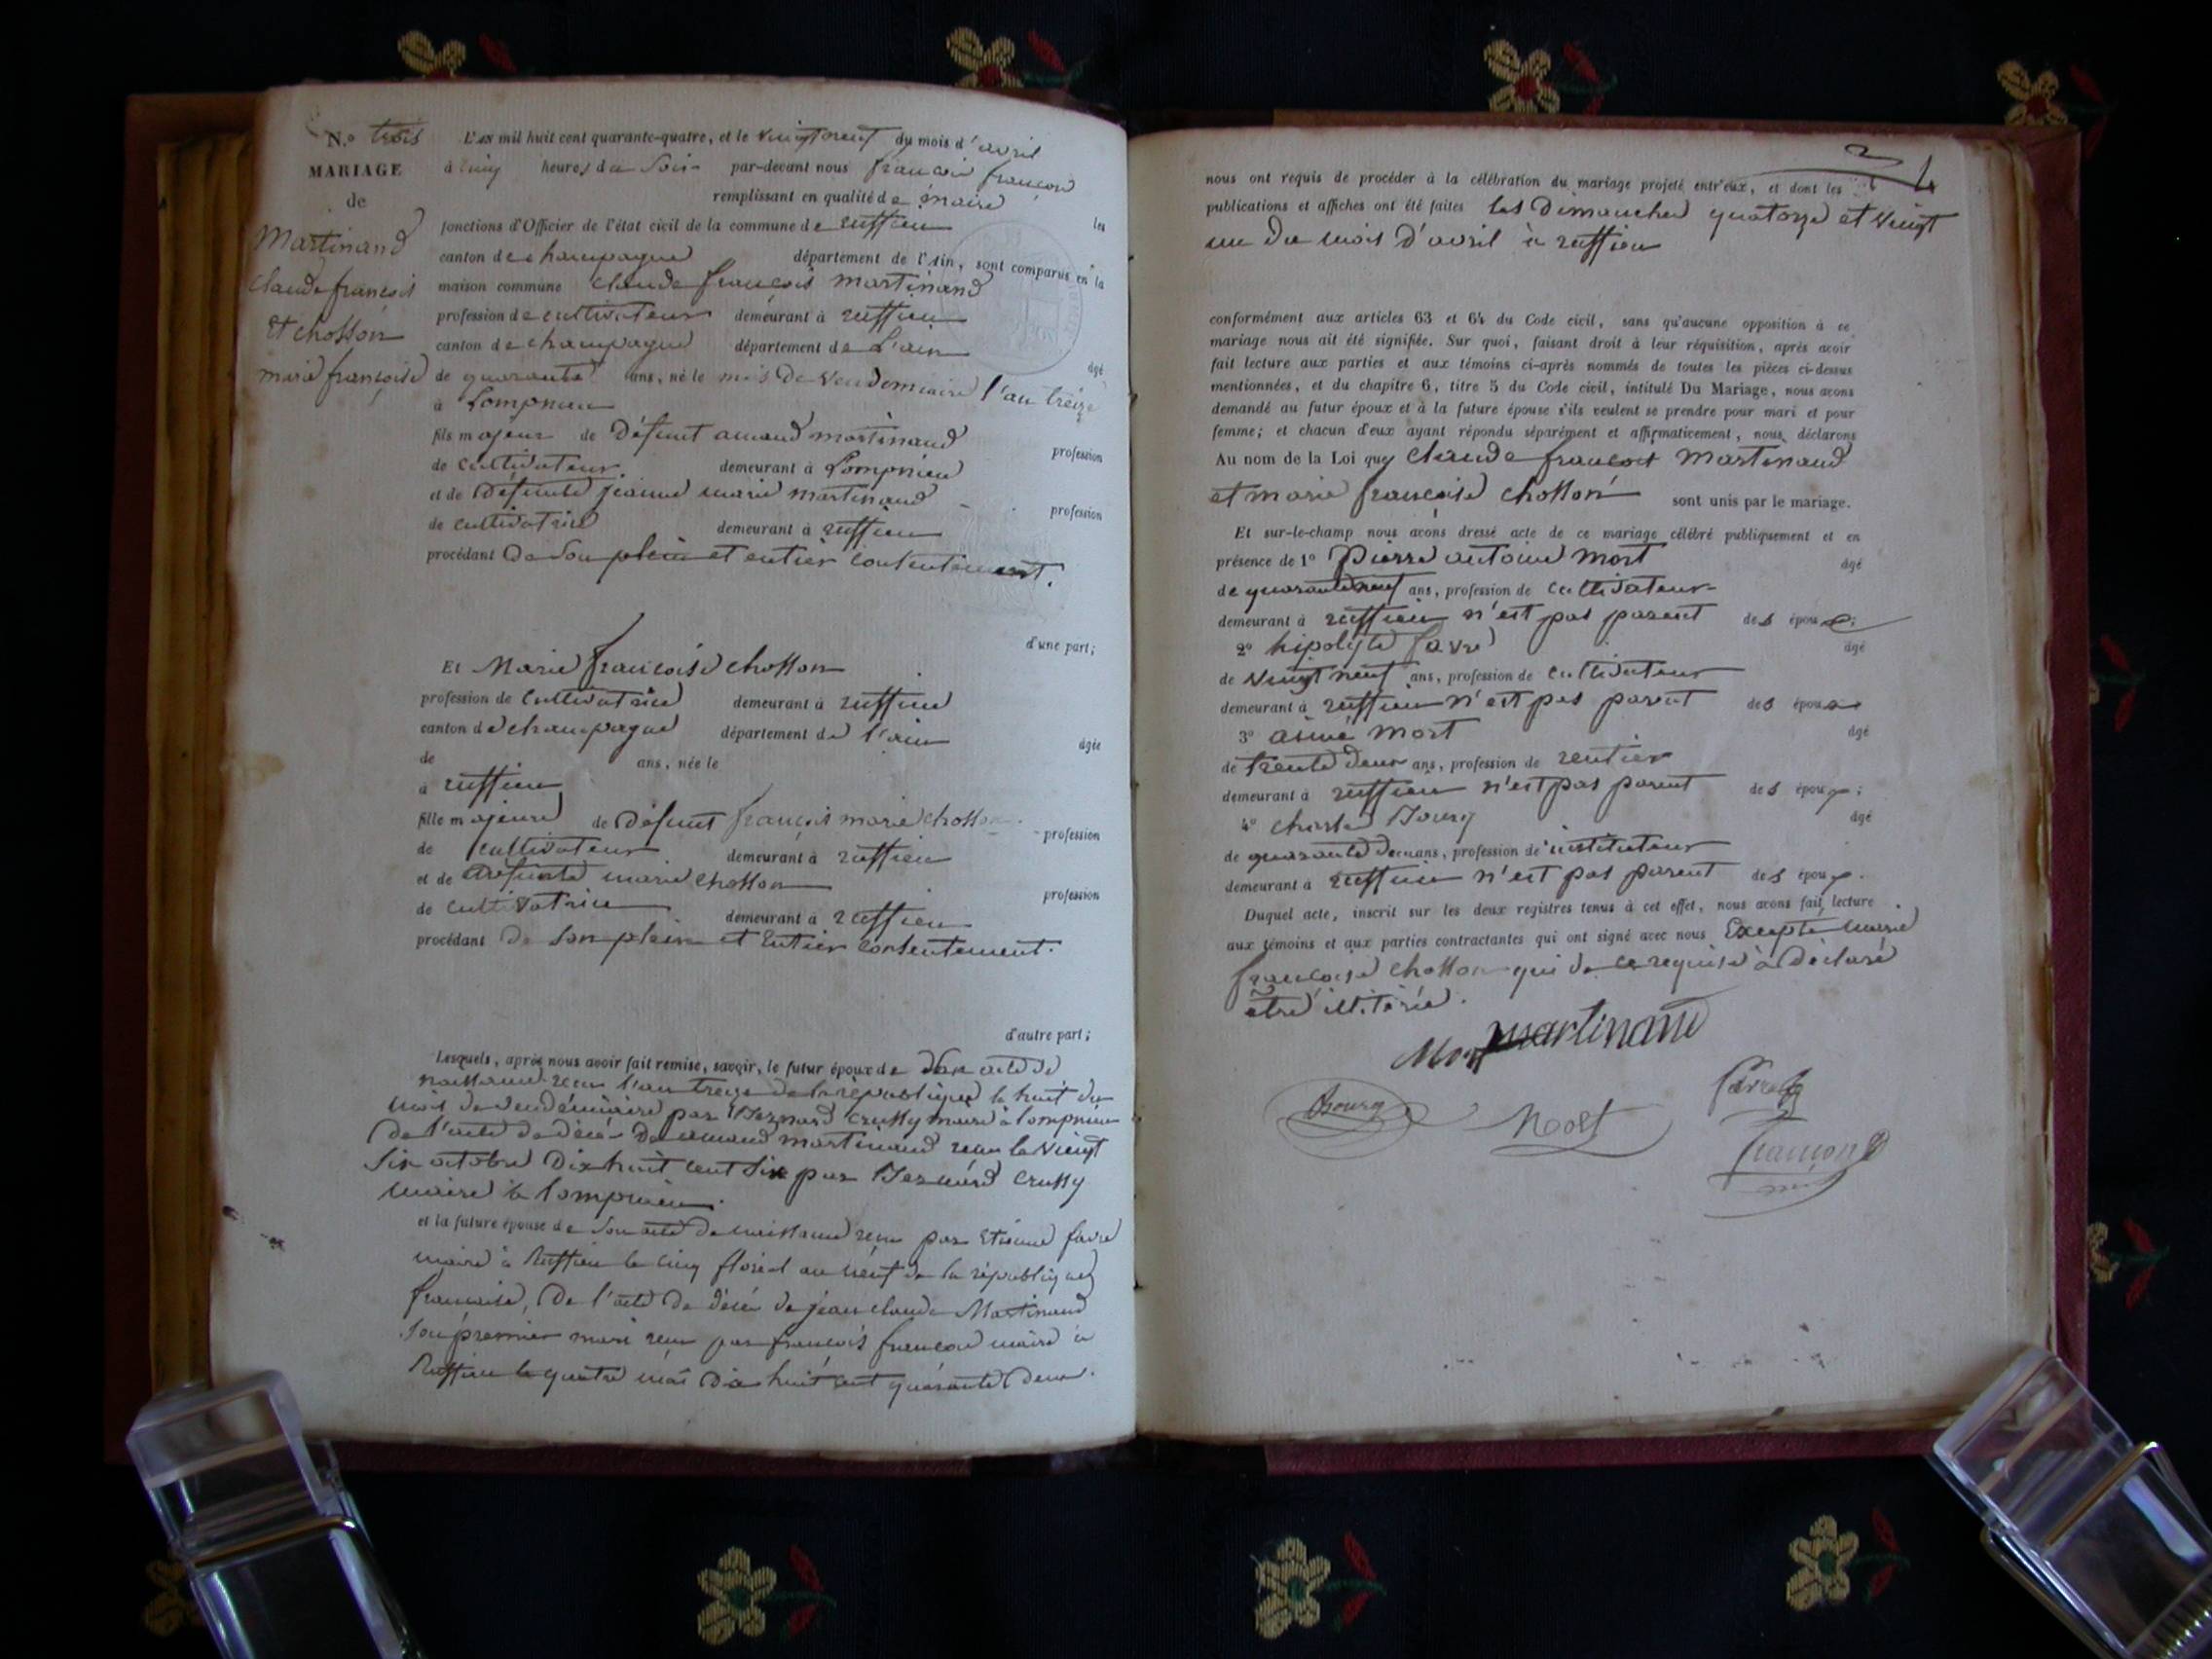 N.o trois
MARIAGE
de
Martinand
Claude françois
Et chosson
marie françoise
L'AN mil huit cent quarante-quatre, et le vingt neuf du mois d'avril
à cinq heures du soir par-devant nous françois françon
remplissant en qualité de maire les
fonctions d'Officier de l'état civil de la commune de ruffieu
canton de champagne département de l'Ain, sont comparus en la
maison commune Claude françois martinand
profession de cultivateur demeurant à ruffieu
canton de champagne département de L'ain âgé
de quarante ans, né le mois de vendemiaire l'an treize
à Lompnieu
fils majeur de Défunt amand martinand profession
de cultivateur demeurant à Lompnieu
et de Défunte jeanne marie martinand profession
de cultivatrice demeurant à ruffieu
procédant De son plein et entier contentement.
d'une part;
Et Marie françoise chosson
profession de cultivatrice demeurant à ruffieu
canton de champagne département de l'ain âgée
de ans, née le
à ruffieu
fille majeure de Défunt françois marie chosson profession
de cultivateur demeurant à ruffieu
et de Défunte marie chosson profession
de cultivatrice demeurant à ruffieu
procédant de son plein et Entier contentement.
d'autre part;
Lesquels, après nous avoir fait remise, savoir, le futur époux de son acte de
naissance reçu l'an treize de la république le huit du
mois de vendémiaire par Bernard crussy maire à lompnieu
de l'acte de décès de amand martinand reçu le vingt
six octobre Dix huit cent six par Bernard crussy
maire à lompnieu.
et la future épouse de son acte de naissance reçu par Etienne favre
maire à Ruffieu le cinq floréal an neuf de la république
française, De l'acte de décès de jean claude Martinand
son premier mari reçu par françois françon maire à
Ruffieu le quatre mai dix huit cent quarante deux.
4
nous ont requis de procéder à la célébration du mariage projeté entr'eux, et dont les
publications et affiches ont été faites les Dimanches quatorze et vingt
un du mois d'avril à ruffieu
conformément aux articles 63 et 64 du Code civil, sans qu'aucune opposition à ce
mariage nous ait été signifiée. Sur quoi, faisant droit à leur réquisition, après avoir
fait lecture aux parties et aux témoins ci-après nommés de toutes les pièces ci-dessus
mentionnées, et du chapitre 6, titre 5 du Code civil, intitulé Du Mariage, nous avons
demandé au futur époux et à la future épouse s'ils veulent se prendre pour mari et pour
femme; et chacun d'eux ayant répondu séparément et affirmativement, nous déclarons
Au nom de la Loi que Claude françois Martinand
et marie françoise chosson sont unis par le mariage.
Et sur-le-champ nous avons dressé acte de ce mariage célébré publiquement et en
présence de 1° Pierre antoine mort âgé
de quarante neuf ans, profession de cultivateur
demeurant à ruffieu n'est pas parent des époux;
2° hipolyte favre âgé
de vingt neuf ans, profession de cultivateur
demeurant à ruffieu n'est pas parent des époux
3° aimé Mort âgé
de trente deux ans, profession de rentier
demeurant à ruffieu n'est pas parent des époux;
4° charle Bourg âgé
de quarante deux ans, profession de instituteur
demeurant à ruffieu n'est pas parent des époux.
Duquel acte, inscrit sur les deux registres tenus à cet effet, nous avons fait lecture
aux témoins et aux parties contractantes qui ont signé avec nous Excepté marie
françoise chosson qui de ce requise à déclaré
etre illitérée.
Mort martinand
Bourg Mort favre
françon